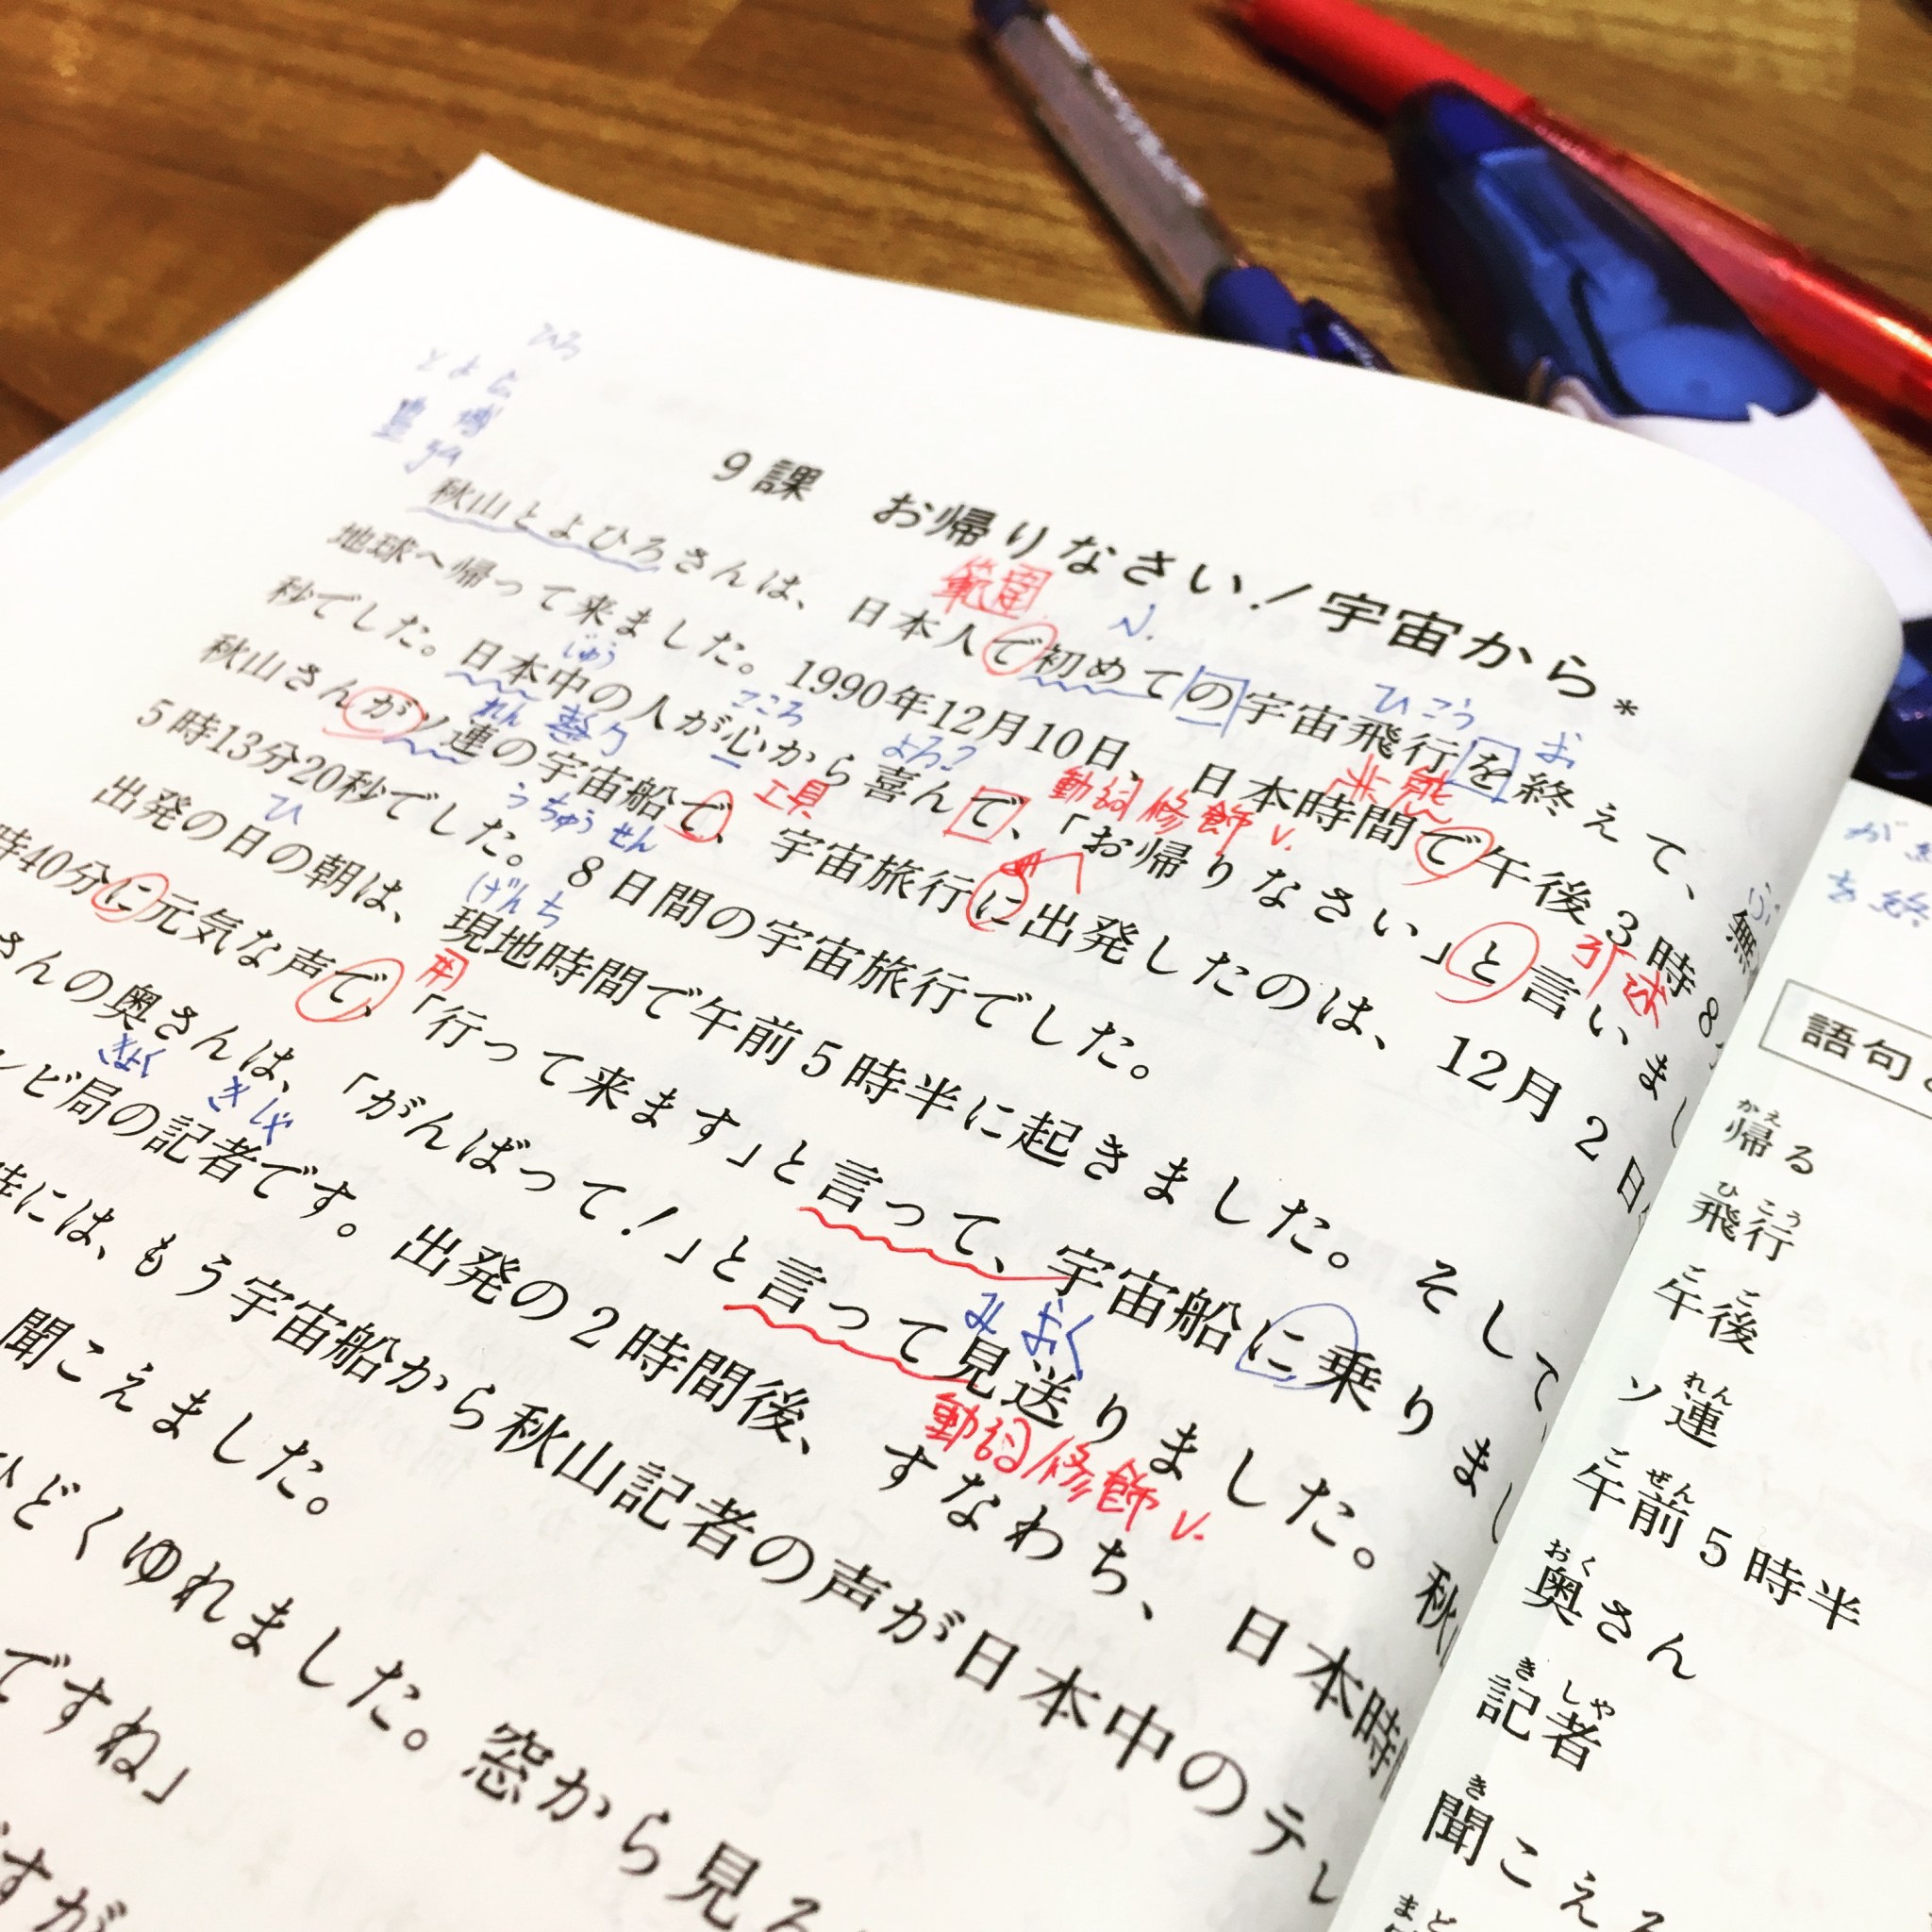 ひろ
とよ
9課 お帰りなさい！宇宙から*
秋山とよひろさんは、日本人で初めての宇宙飛行を終えて、無
範囲
N.
ひこう
お
ぶ
地球へ帰って来ました。1990年12月10日、日本時間で午後3時8
じゅう
こころ
よろ
動詞修飾 V.
秒でした。日本中の人が心から喜んで、「お帰りなさい」と言いまし
れん
工具
引述
秋山さんがソ連の宇宙船で、宇宙旅行に出発したのは、12月2日
うちゅうせん
5時13分20秒でした。8日間の宇宙旅行でした。
ひ
げんち
出発の日の朝は、現地時間で午前5時半に起きました。そして、
時40分に元気な声で、「行って来ます」と言って、宇宙船に乗りまし
さんの奥さんは、「がんばって！」と言って見送りました。秋
きょく
きしゃ
みおく
動詞修飾 V.
レビ局の記者です。出発の2時間後、すなわち、日本時
には、もう宇宙船から秋山記者の声が日本中のテレ
聞こえました。
ひどくゆれました。窓から見る
ですね」
すが
が
を終
語句
かえ
帰る
ひこう
飛行
ごご
午後
れん
ソ連
ごぜん
午前5時半
おく
奥さん
きしゃ
記者
き
聞こえ
まど